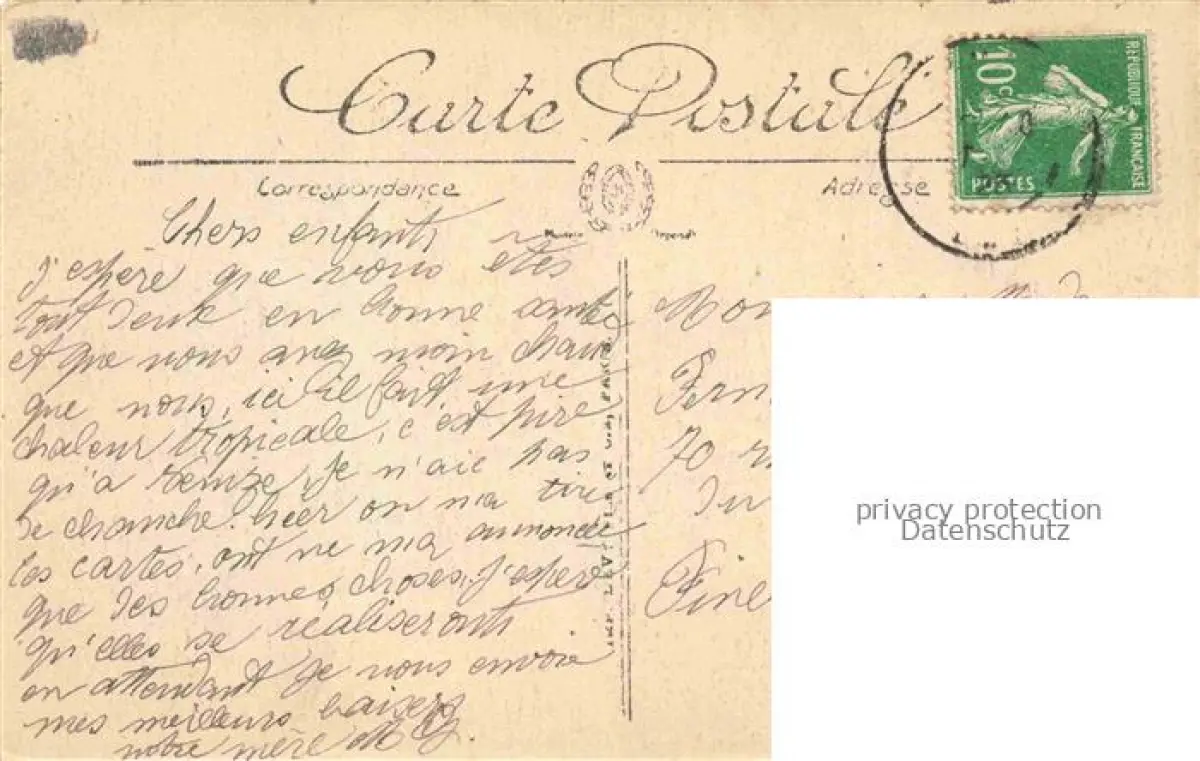 Carte Postale
10c
REPUBLIQUE FRANCAISE
POSTES
Correspondance
Adresse
Chers enfants
J'espère que vous etes
tout deux en bonne santé
et que vous avez moin chaud
que nous, ici il fait une
chaleur tropicale, c'est pire
qu'a, Je n'aie pas
de chanche. hier on ma tiré
les cartes, ont ne ma annoncée
que des bonnes choses, j'espère
qu'elles se réaliseronts
en attendant Je vous envoie
mes meilleurs baisers
votre mère
Mon
Fern
70 r
Du
Fine
privacy protection
Datenschutz